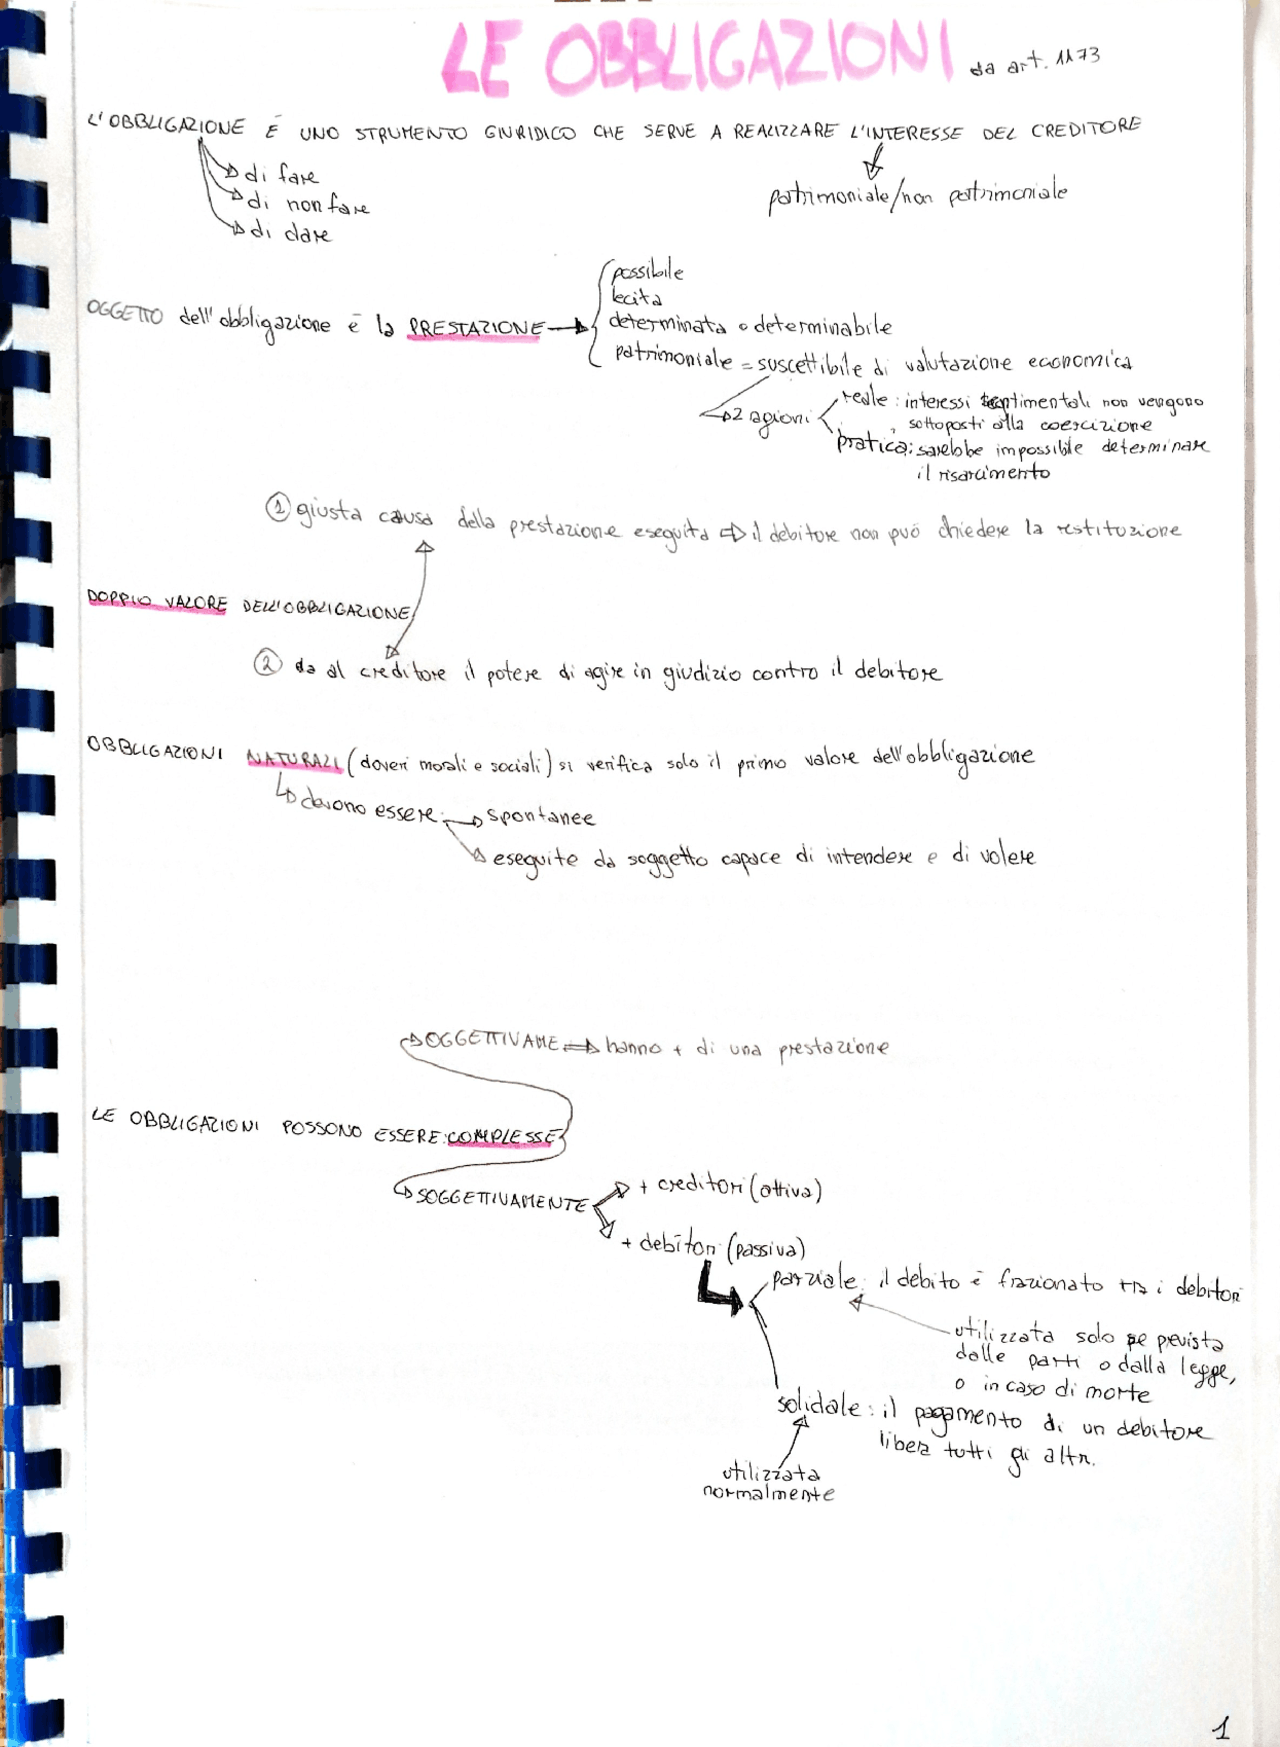 LE OBBLIGAZIONI da art. 1173
L'OBBLIGAZIONE È UNO STRUMENTO GIURIDICO CHE SERVE A REALIZZARE L'INTERESSE DEL CREDITORE
di fare
di non fare
di dare
patrimoniale/non patrimoniale
OGGETTO dell'obbligazione è la PRESTAZIONE
possibile
lecita
determinata o determinabile
patrimoniale = suscettibile di valutazione economica
2 agioni
reale: interessi sentimentali non vengono
sottoposti alla coercizione
pratica: sarebbe impossibile determinare
il risarcimento
1 giusta causa della prestazione eseguita il debitore non può chiedere la restituzione
DOPPIO VALORE DELL'OBBLIGAZIONE
2 da al creditore il potere di agire in giudizio contro il debitore
OBBLIGAZIONI NATURALI (doveri morali e sociali) si verifica solo il primo valore dell'obbligazione
devono essere: spontanee
eseguite da soggetto capace di intendere e di volere
OGGETTIVAME hanno + di una prestazione
LE OBBLIGAZIONI POSSONO ESSERE: COMPLESSE
SOGGETTIVAMENTE
+ creditori (attiva)
+ debitori (passiva)
parziale: il debito è frazionato tra i debitori
utilizzata solo se prevista
dalle parti o dalla legge,
o in caso di morte
solidale: il pagamento di un debitore
libera tutti gli altri.
utilizzata
normalmente
1